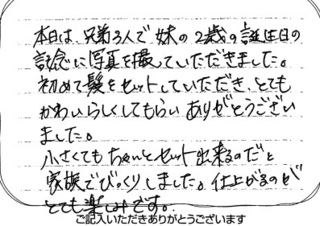 本日は、兄弟3人で妹の2歳の誕生日の
記念に写真を撮していただきました。
初めて髪をセットしていただき、とても
かわいらしくしてもらい ありがとうござい
ました。
小さくても ちゃんとセット出来るのだと
家族でびっくりしました。仕上がるのが
とても楽しみです。
ご記入いただきありがとうございます